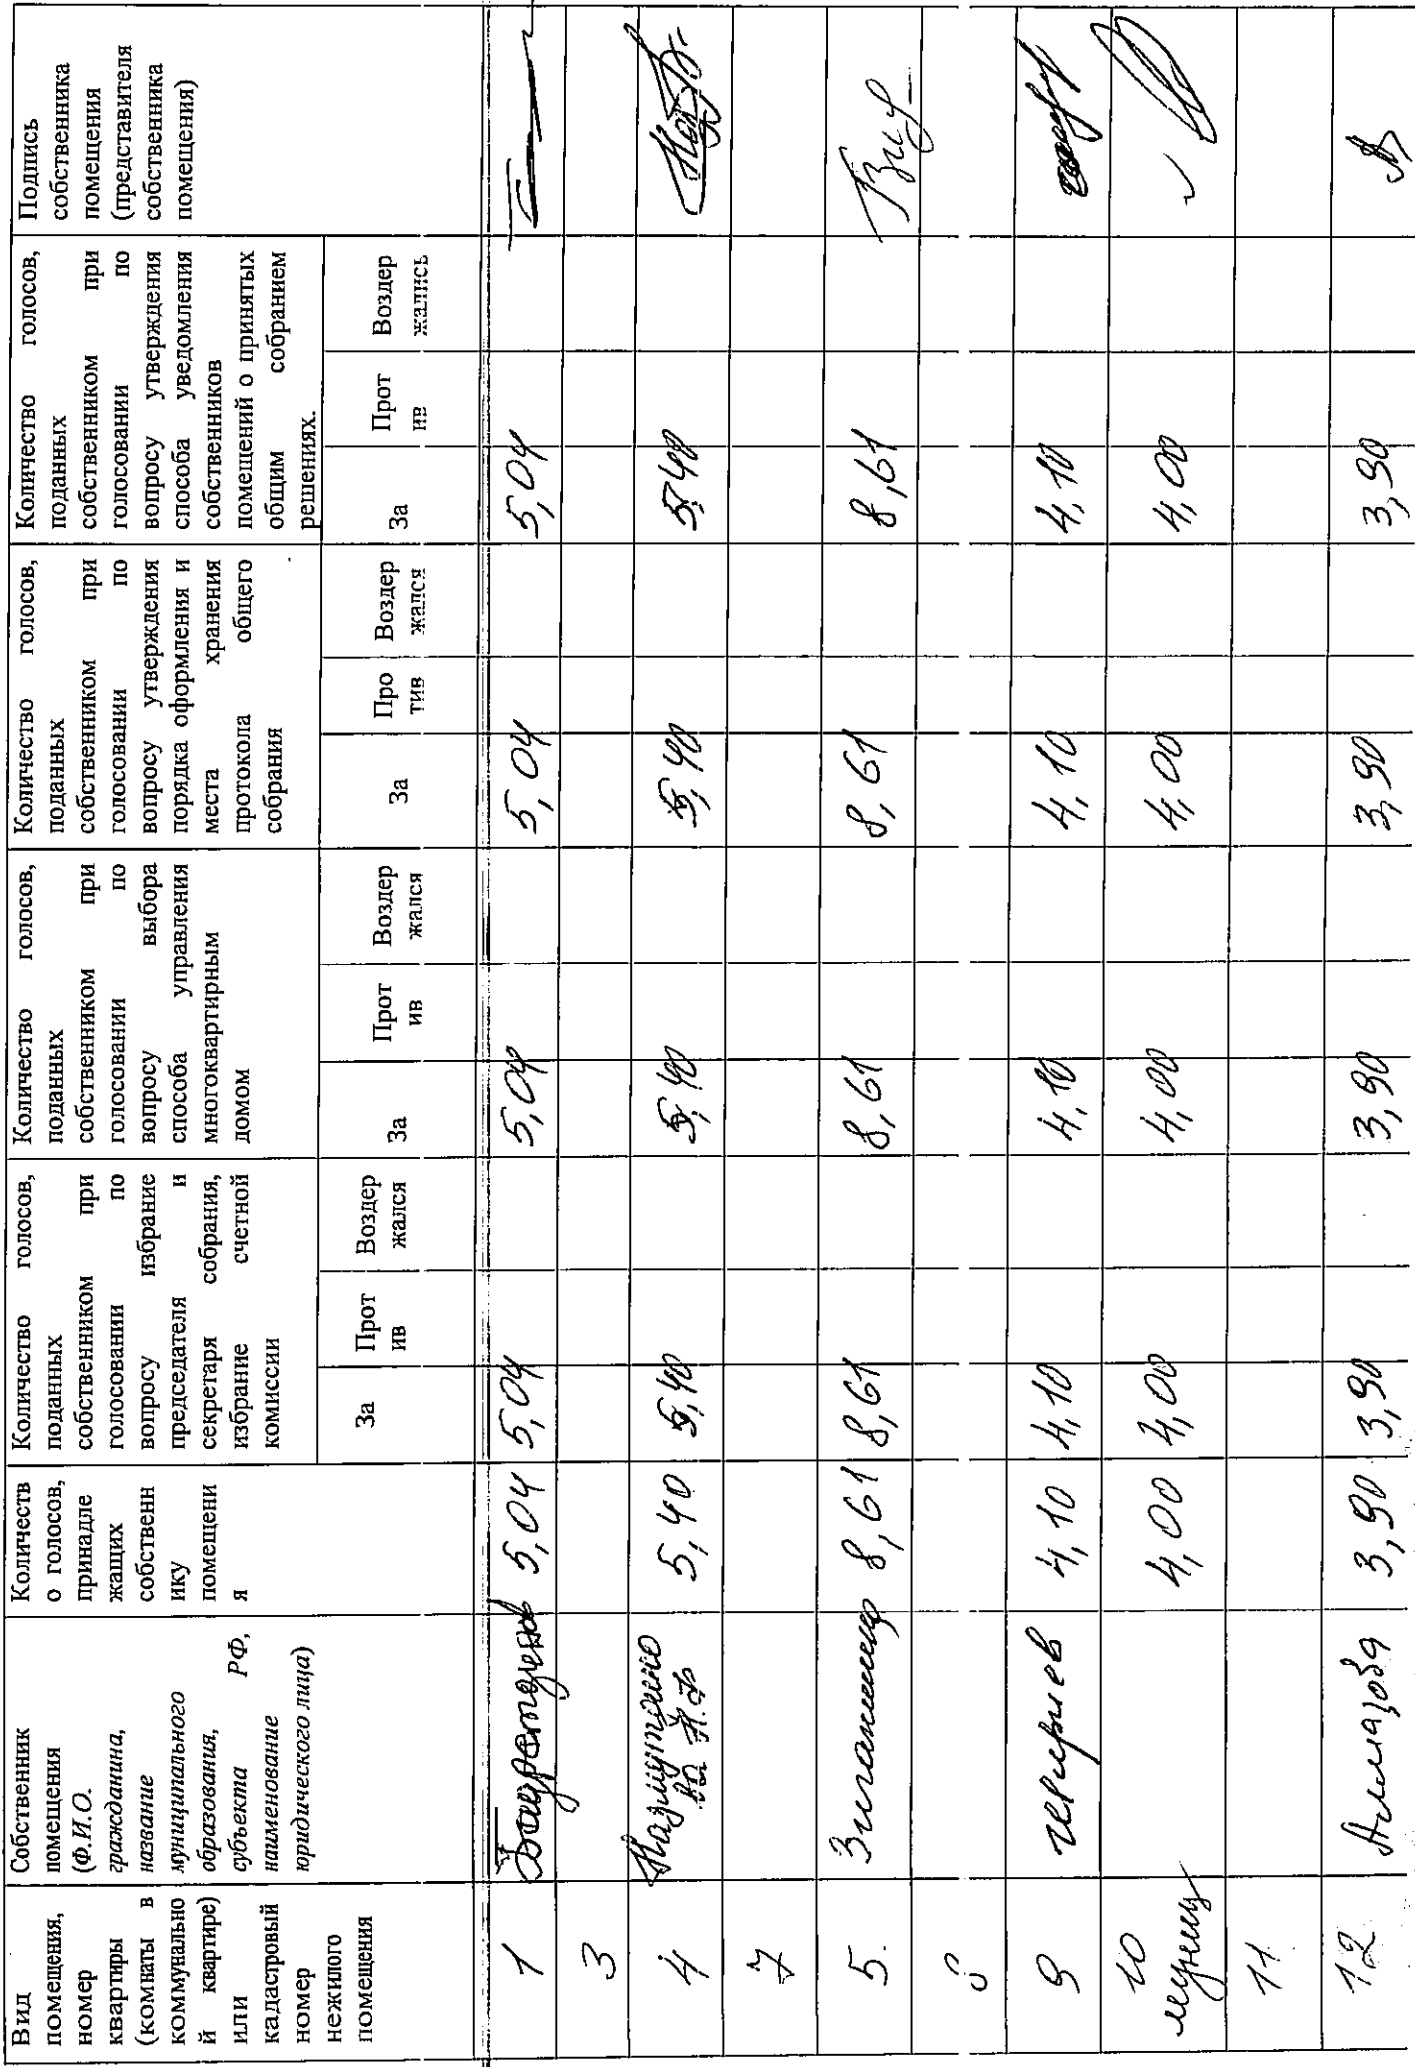 Вид
помещения,
номер
квартиры
(комнаты в
коммунально
й квартире)
или
кадастровый
номер
нежилого
помещения
Собственник
помещения
(Ф.И.О.
гражданина,
название
муниципального
образования,
субъекта РФ,
наименование
юридического лица)
Количеств
о голосов,
принадле
жащих
собственн
ику
помещени
я
Количество голосов,
поданных
собственником при
голосовании по
вопросу избрание
председателя и
секретаря собрания,
избрание счетной
комиссии
Количество голосов,
поданных
собственником при
голосовании по
вопросу выбора
способа управления
многоквартирным
домом
Количество голосов,
поданных
собственником при
голосовании по
вопросу утверждения
порядка оформления и
места хранения
протокола общего
собрания
Количество голосов,
поданных
собственником при
голосовании по
вопросу утверждения
способа уведомления
собственников
помещений о принятых
общим собранием
решениях.
Подпись
собственника
помещения
(представителя
собственника
помещения)
За Прот
ив Воздер
жался За Прот
ив Воздер
жался За Про
тив Воздер
жался За Прот
ив Воздер
жались
1 5,04 5,04 5,04 5,04 5,04
3
4 5,40 5,40 5,40 5,40 5,40
7
5. 8,61 8,61 8,61 8,61 8,61
9 4,10 4,10 4,10 4,10 4,10
10 4,00 4,00 4,00 4,00 4,00
муниц
11
12 Алмазова 3,90 3,90 3,90 3,90 3,90